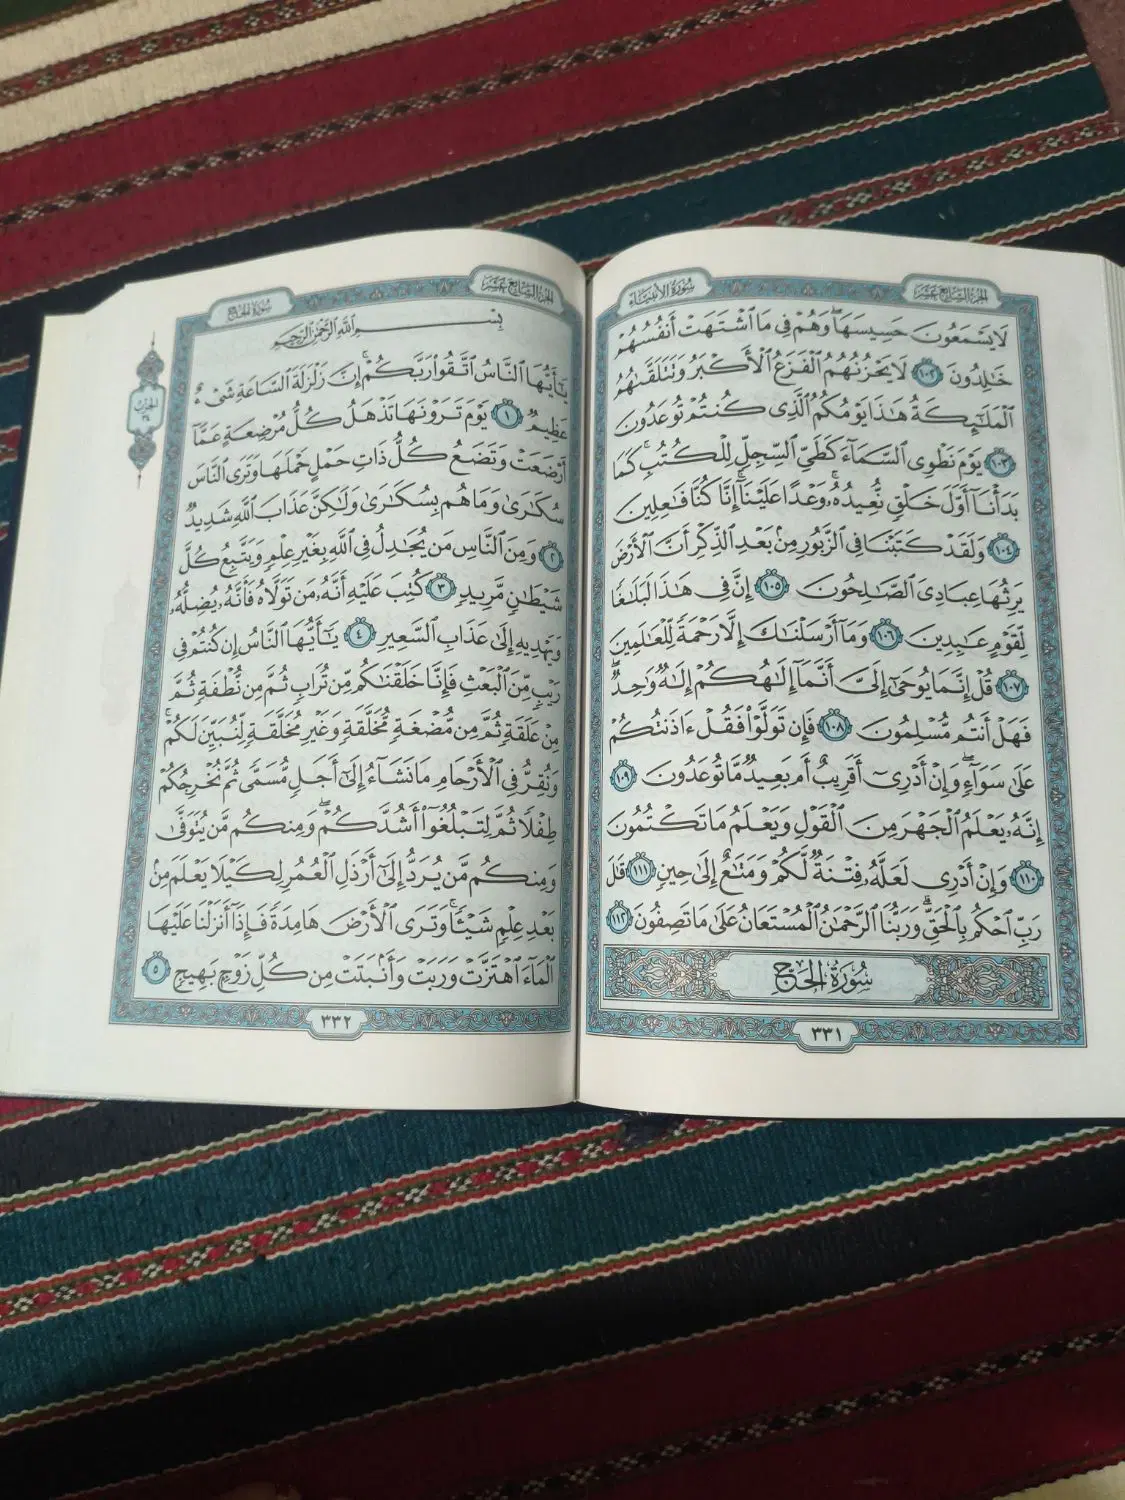 الجزء السابع عشر
سورة الأنبياء
لَا يَسْمَعُونَ حَسِيسَهَا ۖ وَهُمْ فِي مَا ٱشْتَهَتْ أَنفُسُهُمْ
خَٰلِدُونَ ١٠٢ لَا يَحْزُنُهُمُ ٱلْفَزَعُ ٱلْأَكْبَرُ وَتَتَلَقَّىٰهُمُ
ٱلْمَلَٰٓئِكَةُ هَٰذَا يَوْمُكُمُ ٱلَّذِي كُنتُمْ تُوعَدُونَ
١٠٣ يَوْمَ نَطْوِي ٱلسَّمَآءَ كَطَيِّ ٱلسِّجِلِّ لِلْكُتُبِ ۚ كَمَا
بَدَأْنَآ أَوَّلَ خَلْقٍ نُّعِيدُهُۥ ۚ وَعْدًا عَلَيْنَآ ۚ إِنَّا كُنَّا فَٰعِلِينَ
١٠٤ وَلَقَدْ كَتَبْنَا فِي ٱلزَّبُورِ مِنۢ بَعْدِ ٱلذِّكْرِ أَنَّ ٱلْأَرْضَ
يَرِثُهَا عِبَادِيَ ٱلصَّٰلِحُونَ ١٠٥ إِنَّ فِي هَٰذَا لَبَلَٰغًا
لِّقَوْمٍ عَٰبِدِينَ ١٠٦ وَمَآ أَرْسَلْنَٰكَ إِلَّا رَحْمَةً لِّلْعَٰلَمِينَ
١٠٧ قُلْ إِنَّمَا يُوحَىٰٓ إِلَيَّ أَنَّمَآ إِلَٰهُكُمْ إِلَٰهٌ وَٰحِدٌ ۖ
فَهَلْ أَنتُم مُّسْلِمُونَ ١٠٨ فَإِن تَوَلَّوْا۟ فَقُلْ ءَاذَنتُكُمْ
عَلَىٰ سَوَآءٍ ۖ وَإِنْ أَدْرِيٓ أَقَرِيبٌ أَم بَعِيدٌ مَّا تُوعَدُونَ ١٠٩
إِنَّهُۥ يَعْلَمُ ٱلْجَهْرَ مِنَ ٱلْقَوْلِ وَيَعْلَمُ مَا تَكْتُمُونَ
١١٠ وَإِنْ أَدْرِي لَعَلَّهُۥ فِتْنَةٌ لَّكُمْ وَمَتَٰعٌ إِلَىٰ حِينٍ ١١١ قَٰلَ
رَبِّ ٱحْكُم بِٱلْحَقِّ ۗ وَرَبُّنَا ٱلرَّحْمَٰنُ ٱلْمُسْتَعَانُ عَلَىٰ مَا تَصِفُونَ ١١٢
سُورَةُ الحَجِّ
٣٣١
الجزء السابع عشر
سورة الحج
بِسْمِ ٱللَّهِ ٱلرَّحْمَٰنِ ٱلرَّحِيمِ
يَٰٓأَيُّهَا ٱلنَّاسُ ٱتَّقُوا۟ رَبَّكُمْ ۚ إِنَّ زَلْزَلَةَ ٱلسَّاعَةِ شَيْءٌ
عَظِيمٌ ١ يَوْمَ تَرَوْنَهَا تَذْهَلُ كُلُّ مُرْضِعَةٍ عَمَّآ
أَرْضَعَتْ وَتَضَعُ كُلُّ ذَاتِ حَمْلٍ حَمْلَهَا وَتَرَى ٱلنَّاسَ
سُكَٰرَىٰ وَمَا هُم بِسُكَٰرَىٰ وَلَٰكِنَّ عَذَابَ ٱللَّهِ شَدِيدٌ
٢ وَمِنَ ٱلنَّاسِ مَن يُجَٰدِلُ فِي ٱللَّهِ بِغَيْرِ عِلْمٍ وَيَتَّبِعُ كُلَّ
شَيْطَٰنٍ مَّرِيدٍ ٣ كُتِبَ عَلَيْهِ أَنَّهُۥ مَن تَوَلَّاهُ فَأَنَّهُۥ يُضِلُّهُۥ
وَيَهْدِيهِ إِلَىٰ عَذَابِ ٱلسَّعِيرِ ٤ يَٰٓأَيُّهَا ٱلنَّاسُ إِن كُنتُمْ فِي
رَيْبٍ مِّنَ ٱلْبَعْثِ فَإِنَّا خَلَقْنَٰكُم مِّن تُرَابٍ ثُمَّ مِن نُّطْفَةٍ ثُمَّ
مِنْ عَلَقَةٍ ثُمَّ مِن مُّضْغَةٍ مُّخَلَّقَةٍ وَغَيْرِ مُخَلَّقَةٍ لِّنُبَيِّنَ لَكُمْ ۚ
وَنُقِرُّ فِي ٱلْأَرْحَامِ مَا نَشَآءُ إِلَىٰٓ أَجَلٍ مُّسَمًّى ثُمَّ نُخْرِجُكُمْ
طِفْلًا ثُمَّ لِتَبْلُغُوٓا۟ أَشُدَّكُمْ ۖ وَمِنكُم مَّن يُتَوَفَّىٰ
وَمِنكُم مَّن يُرَدُّ إِلَىٰٓ أَرْذَلِ ٱلْعُمُرِ لِكَيْلَا يَعْلَمَ مِنۢ
بَعْدِ عِلْمٍ شَيْـًٔا ۚ وَتَرَى ٱلْأَرْضَ هَامِدَةً فَإِذَآ أَنزَلْنَا عَلَيْهَا
ٱلْمَآءَ ٱهْتَزَّتْ وَرَبَتْ وَأَنۢبَتَتْ مِن كُلِّ زَوْجٍۭ بَهِيجٍ ٥
الحزب
٣٤
٣٣٢